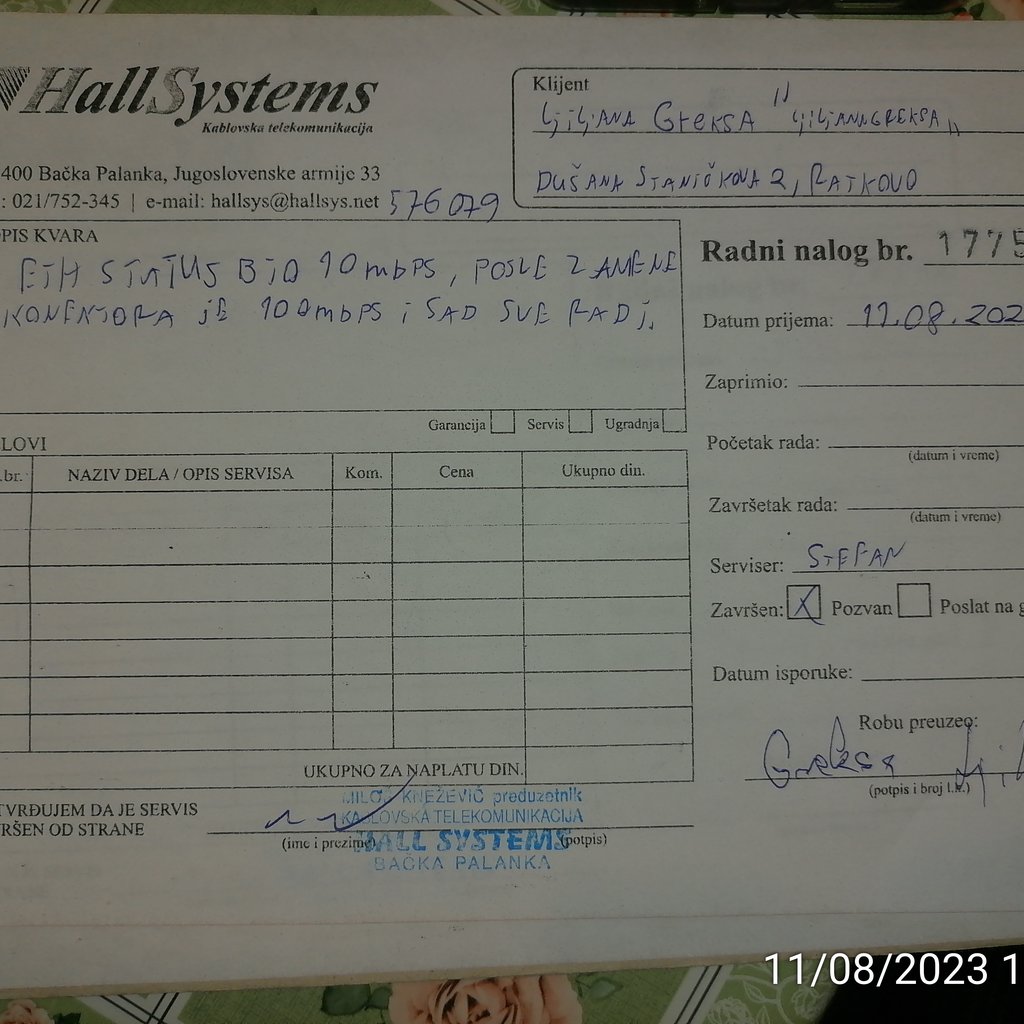 HallSystems
Kablovska telekomunikacija
400 Bačka Palanka, Jugoslovenske armije 33
: 021/752-345 | e-mail: hallsys@hallsys.net 576 079
Klijent
LJILJANA GREKSA "LJILJANAGREKSA"
DUŠANA STANIČKOVA 2, RATKOVO
PIS KVARA
ETH STATUS BIO 10mbPS, POSLE ZAMENE
KONEKTORA JE 100mbPS i SAD SVE RADI.
Garancija Servis Ugradnja
Radni nalog br. 1775
Datum prijema: 11.08.202
Zaprimio:
Početak rada:
(datum i vreme)
Završetak rada:
(datum i vreme)
Serviser: STEFAN
Završen: X Pozvan Poslat na g
Datum isporuke:
Robu preuzeo:
Greksa
(potpis i broj l.k.)
LOVI
.br. NAZIV DELA / OPIS SERVISA Kom. Cena Ukupno din.
UKUPNO ZA NAPLATU DIN.
TVRĐUJEM DA JE SERVIS
RŠEN OD STRANE
(ime i prezime) (potpis)
MILOŠ KNEŽEVIĆ preduzetnik
KABLOVSKA TELEKOMUNIKACIJA
HALL SYSTEMS
BAČKA PALANKA
11/08/2023 1